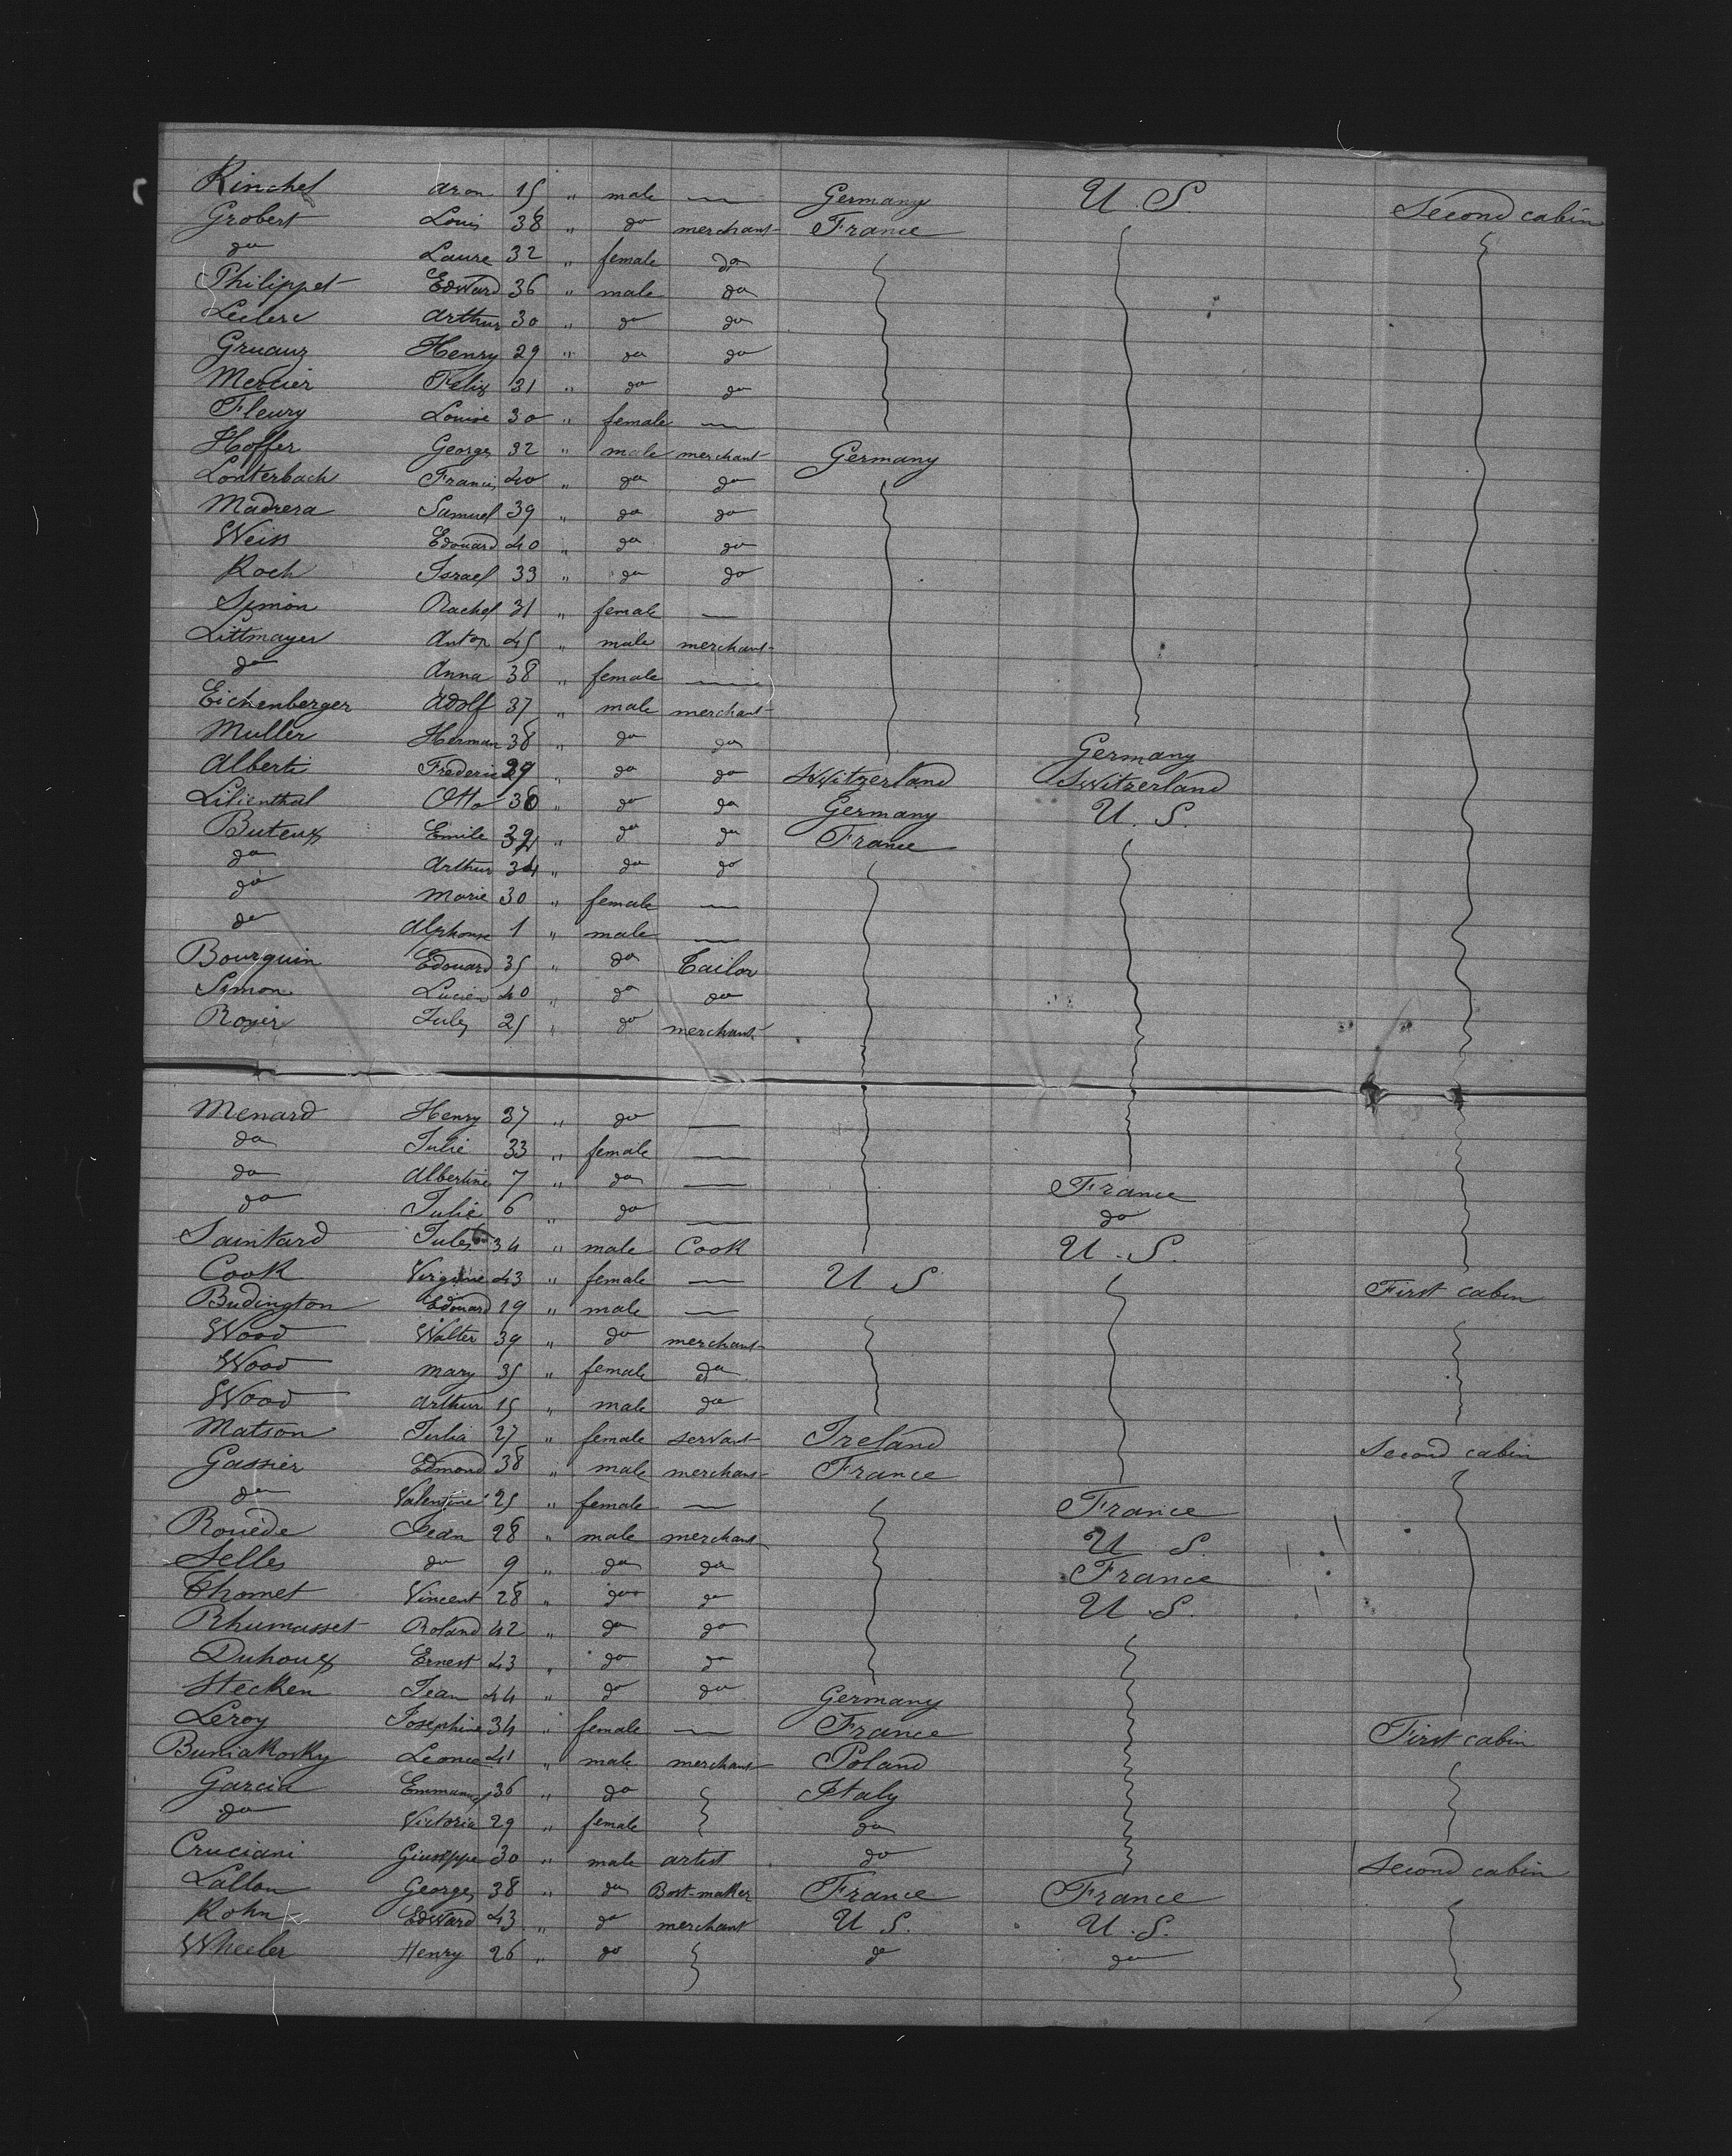 Kinchel Aron 15 " male — Germany U.S. Second cabin
Grobert Louis 38 " do merchant France
do Laure 32 " female do
Philippet Edward 36 " male do
Leclerc Arthur 30 " do do
Gruauz Henry 29 " do do
Mercier Felix 31 " do do
Fleury Louise 30 " female —
Hoffer Georges 32 " male merchant Germany
Lonterbach Francis 40 " do do
Madrera Samuel 39 " do do
Weiss Edouard 40 " do do
Koch Israel 33 " do do
Simon Rachel 31 " female —
Littmayer Anton 45 " male merchant
do Anna 38 " female —
Eichenberger Adolf 37 " male merchant
Muller Herman 38 " do do Germany
Alberti Frederic 29 " do do Switzerland Switzerland
Lilienthal Otto 30 " do do Germany U.S.
Buteux Emile " do do France
do Arthur 34 " do do
do Marie 30 " female —
do Alphonse 1 " male —
Bourquin Edouard 35 " do Tailor
Simon Lucien 40 " do do
Royer Jules 25 " do merchant
Menard Henry 37 " do —
do Julie 33 " female —
do Albertine 7 " do — France
do Julie 6 " do — do
Saintard Jules 34 " male Cook U.S.
Cook Virginie 43 " female — U S First cabin
Budington Edouard 19 " male —
Wood Walter 39 " do merchant
Wood Mary 35 " female do
Wood Arthur 15 " male do
Matson Julia 27 " female servant Ireland Second cabin
Gassier Edmond 38 " male merchant France
do Valentine 25 " female — France
Rouède Jean 28 " male merchant U S.
Selles do 9 " do do France
Thomet Vincent 28 " do do U.S.
Rhumasset Roland 42 " do do
Duhoux Ernest 43 " do do
Stecken Jean 44 " do do Germany
Leroy Josephine 34 " female — France First cabin
Buniakosky Leonce 41 " male merchant Poland
Garcin Emmanuel 36 " do Italy
do Victoria 29 " female do
Cruciani Giuseppe 30 " male artist do Second cabin
Lallon Georges 38 " do Boot-maker France France
Kohn Edward 43 " do merchant U S. U.S.
Wheeler Henry 26 " do do do